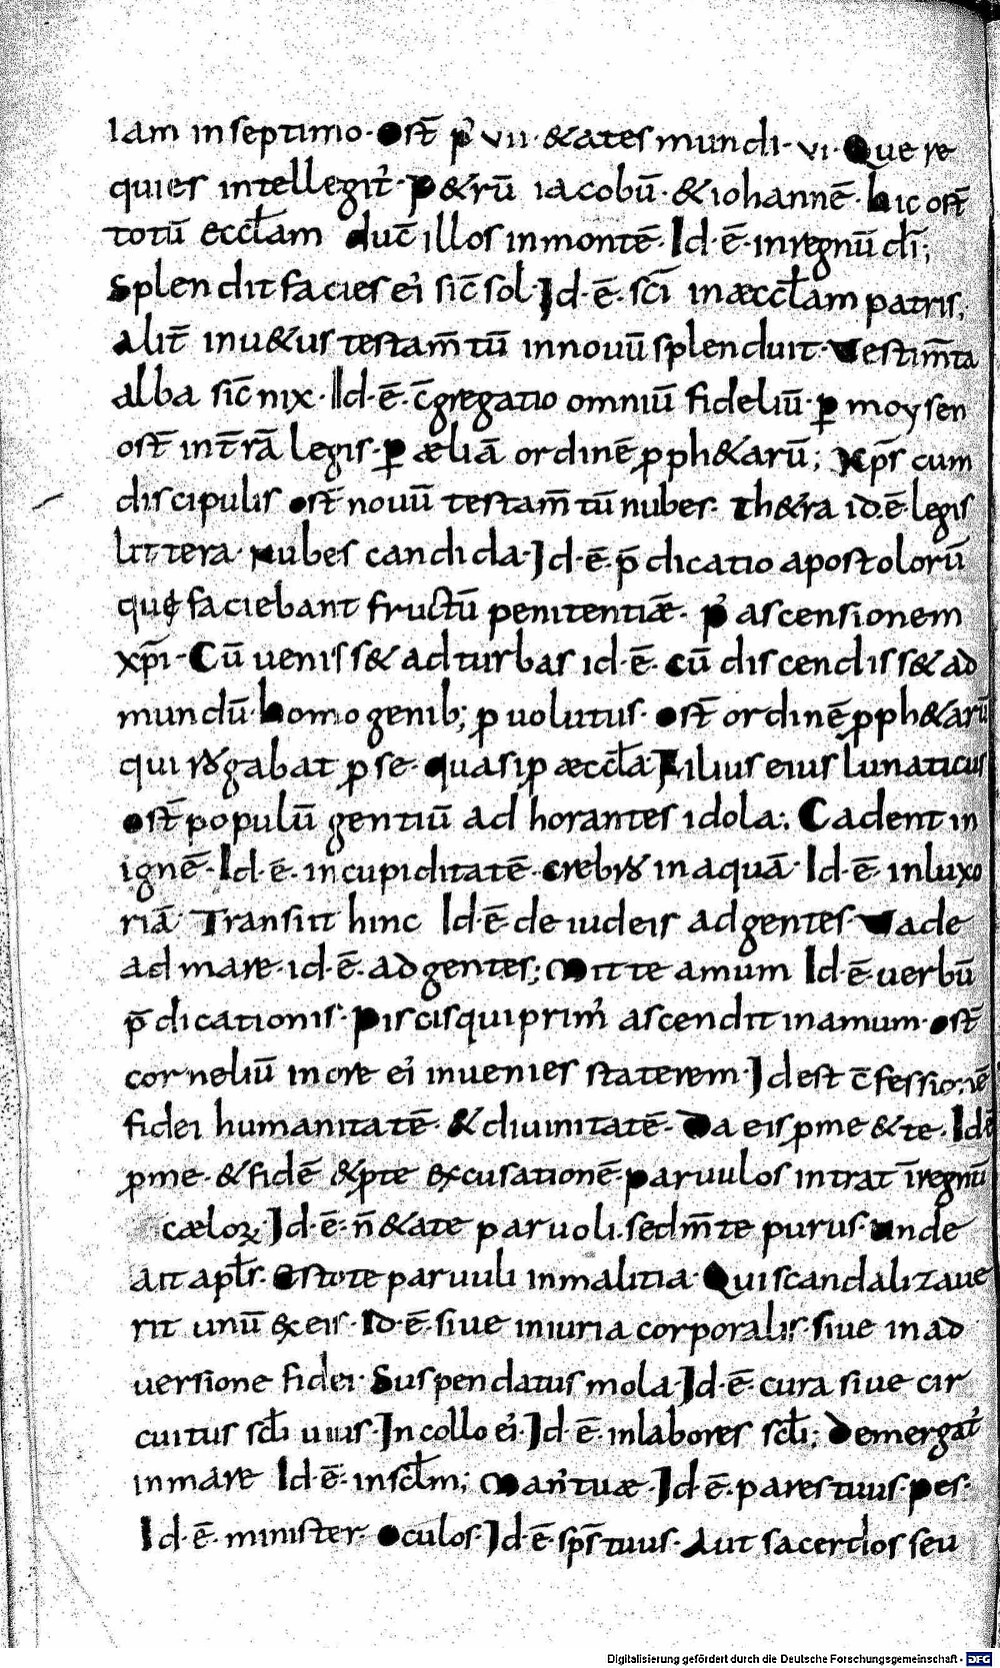 Iam inseptimo· Ost̄ pꝰ vii· &ates mundi· vi· Que re
quies intellegit᷒· P&rū iacobū· &iohannē· hic ost̄
totū eccl̄am duc̄ illos inmontē· Id·ē· inregnū dī;
Splendit facies eiꝰ sic̄ sol· Id·ē· sc̄i inæccl̄am patris;
alit̄ inu&us testam̄tū innouū splenduit· Vestim̄ta
alba sic̄ nix· Id·ē· c̄gregatio omniū fideliū· ꝑ moysen
ost̄ int̄rā legis· ꝑ æliā ordinē ꝓph&arū; Xp̄s cum
discipulis ost̄ nouū testam̄tū nubes· Th&ra id·ē· legis
littera· Nubes candida· Id·ē· p̄dicatio apostolorū
quę faciebant fructū penitentiæ· pꝰ ascensionem
xp̄i· Cū uenis s& adturbas id·ē· Cū discendis s& ad
mundū· homo genib; ꝓuolutus· ost̄ ordinē ꝓph&arū
qui rogabat ꝓ se· quasi ꝓ æccl̄a Filius eius lunaticus
ost̄ populū gentiū ad horantes idola; Cadent in
ignē· Id·ē· incupiditatē· crebro inaquā· Id·ē· inluxo
riā· Transiit hinc Id·ē· de iudeis adgentes· Vade
ad mare· id·ē· adgentes; Mitte amum Id·ē· uerbū
p̄dicationis· Piscisquiprimꝰ ascendit inamum· ost̄
corneliū inore eiꝰ inuenies staterem· Idest c̄fessionē
fidei humanitatē· & diuinitatē· Da eis ꝓme & te· Idē
ꝓme· & fidē & ꝓte excusationē· paruulos intrat īregnū
cæloꝝ· Id·ē· n̄ &ate paruoli· sedm̄te purus· unde
ait apl̄s· Estote paruuli inmalitia· Qui scandalizaue
rit unū exeis· Id·ē· siue iniuria corporalis· siue inad
uersione fidei· Suspendatus mola· Id·ē· cura siue cir
cuitus scl̄i uiuis· In collo eiꝰ· Id·ē· inlabores scl̄i; Demergat᷒
inmare Id·ē· inscl̄m; Manꝰ tuæ· Id·ē· pares tuus· pes·
Id·ē· minister· Oculos· Id·ē· sp̄s tuus· Aut sacerdos seu
Digitalisierung gefördert durch die Deutsche Forschungsgemeinschaft - DFG